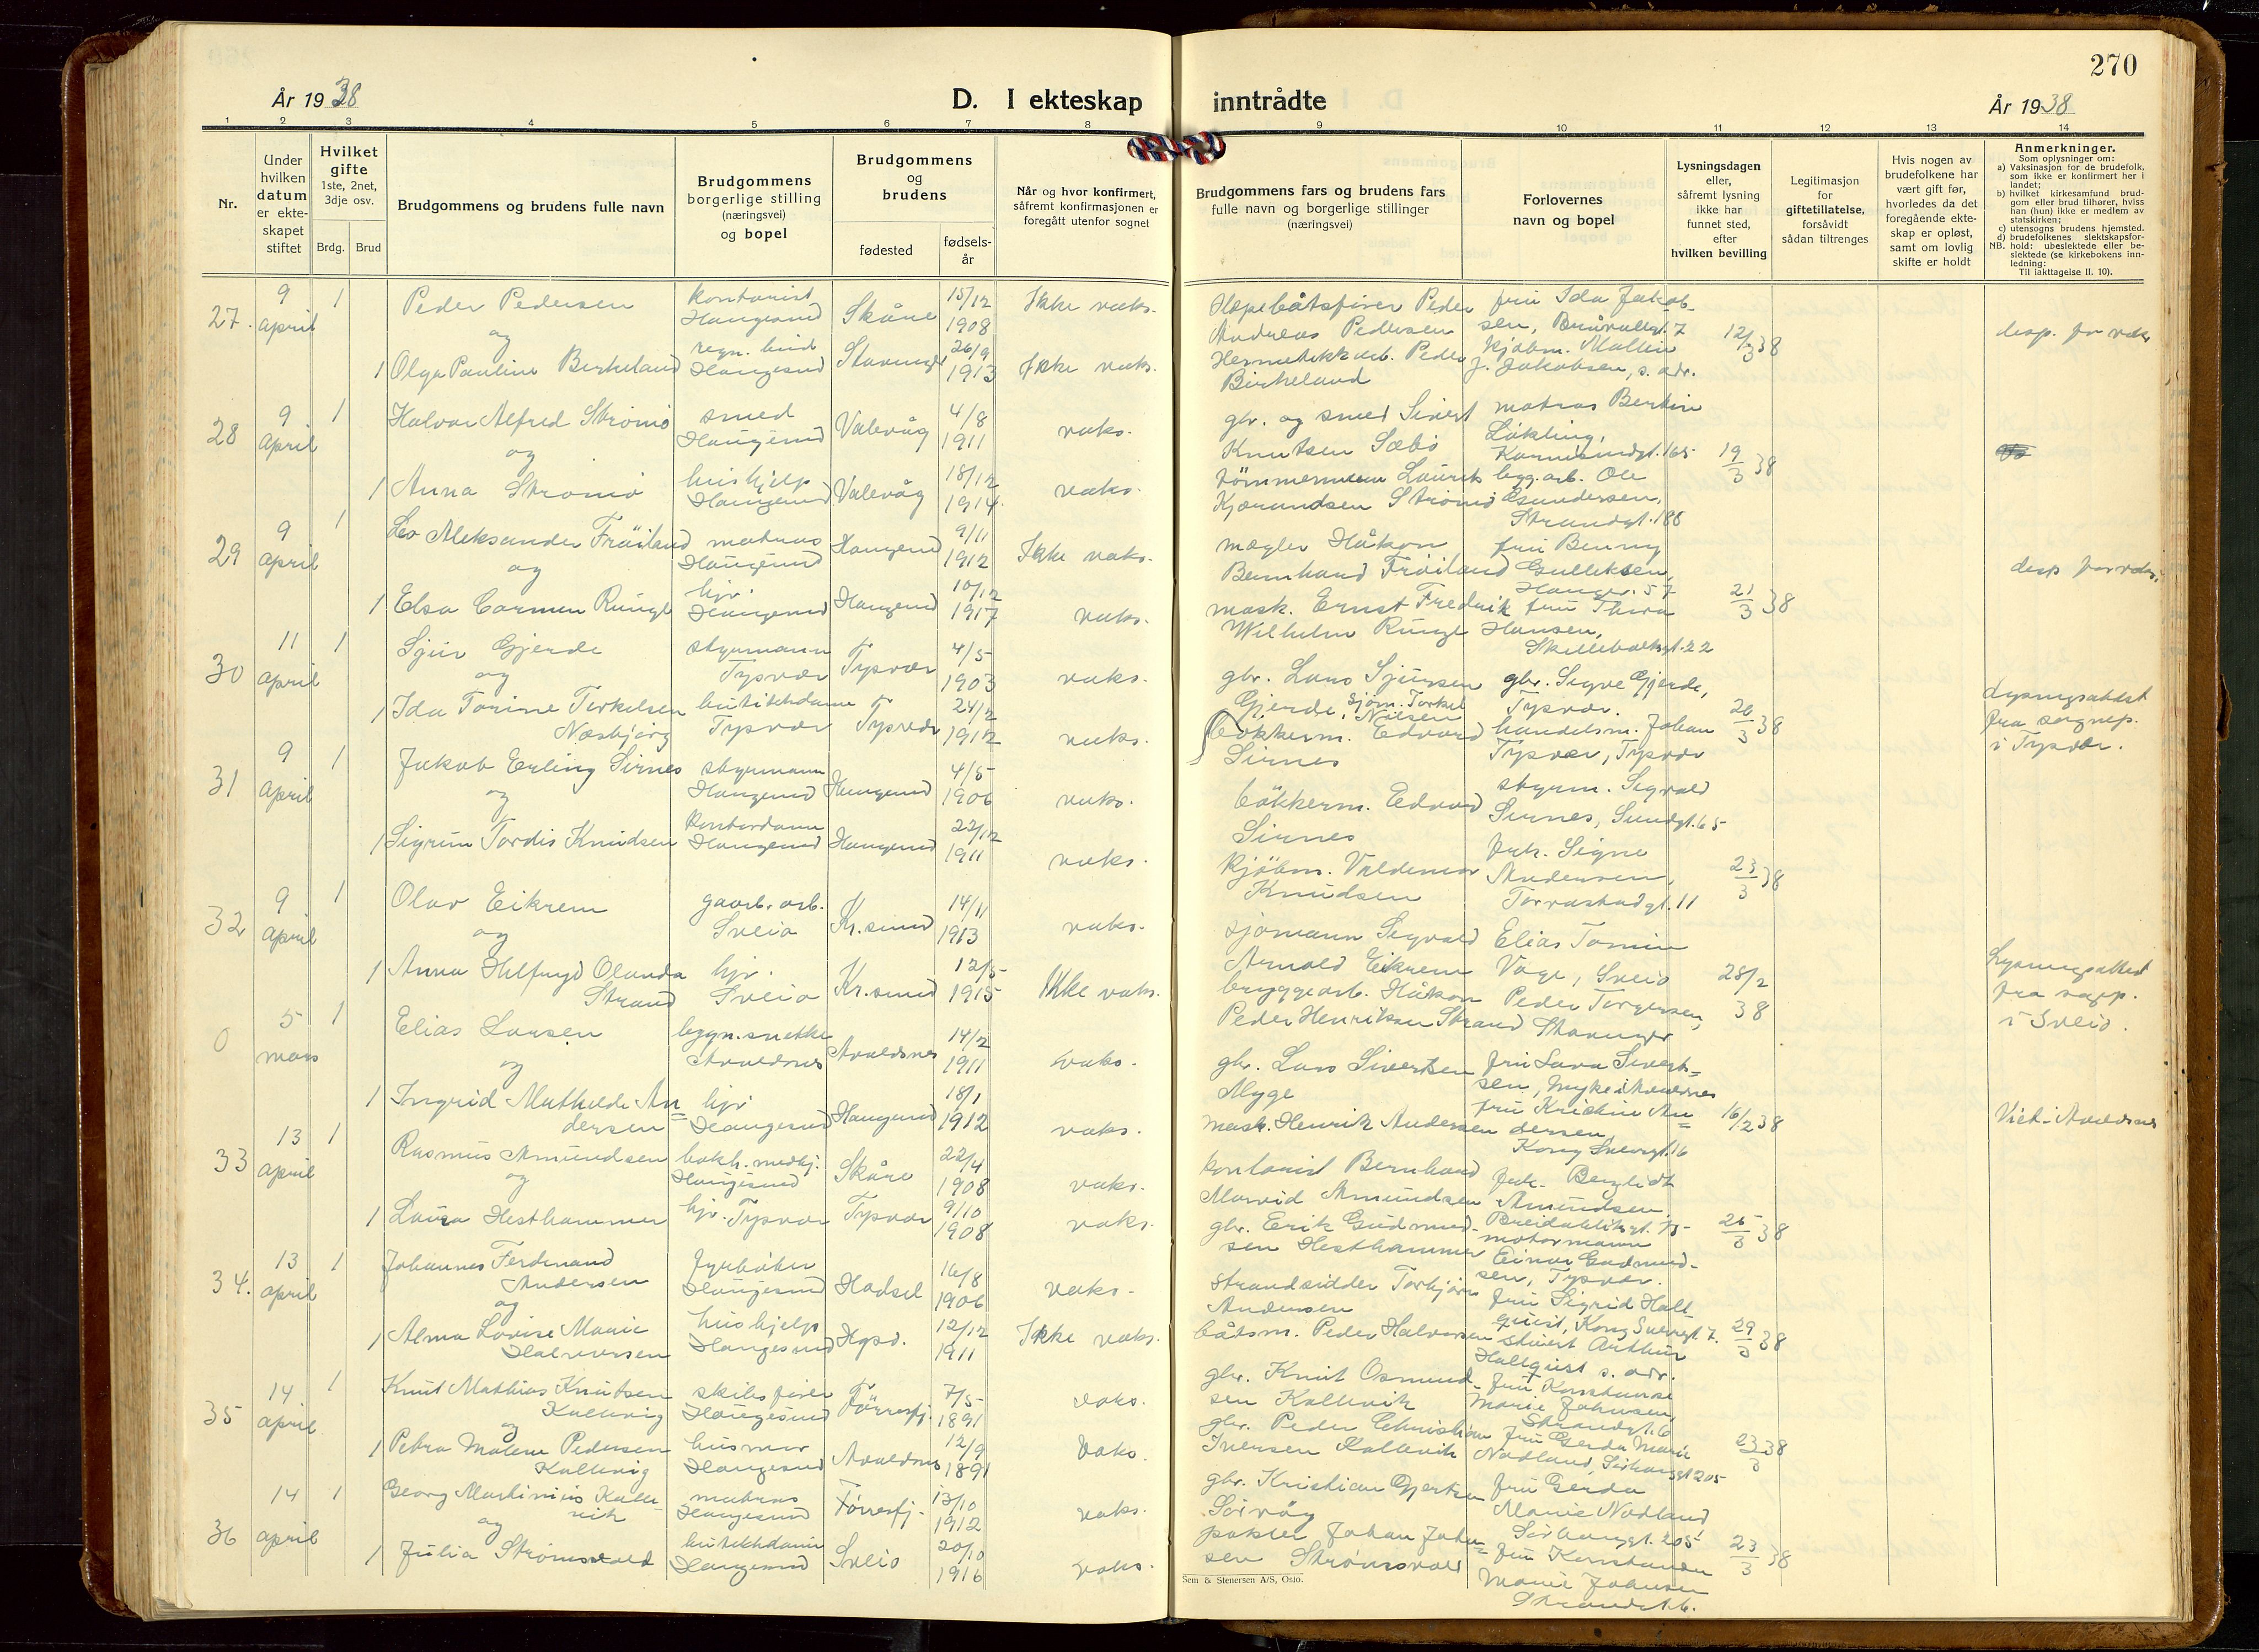 270
År 1938
D. I ekteskap inntrådte
År 1938
1 2 3 4 5 6 7 8 9 10 11 12 13 14
Nr.
Under hvilken datum er ekte-skapet stiftet
Hvilket gifte 1ste, 2net, 3dje osv.
Brdg. Brud
Brudgommens og brudens fulle navn
Brudgommens borgerlige stilling (næringsvei) og bopel
Brudgommens og brudens
fødested
fødsels-år
Når og hvor konfirmert, såfremt konfirmasjonen er foregått utenfor sognet
Brudgommens fars og brudens fars fulle navn og borgerlige stillinger (næringsvei)
Forlovernes navn og bopel
Lysningsdagen eller, såfremt lysning ikke har funnet sted, efter hvilken bevilling
Legitimasjon for giftetillatelse, forsåvidt sådan tiltrenges
Hvis nogen av brudefolkene har vært gift før, hvorledes da det foregående ekte-skap er opløst, samt om lovlig skifte er holdt
Anmerkninger.
Som oplysninger om:
a) Vaksinasjon for de brudefolk, som ikke er konfirmert her i landet;
b) hvilket kirkesamfund brud-gom eller brud tilhører, hviss han (hun) ikke er medlem av statskirken;
c) utensogns brudens hjemsted.
d) brudefolkenes slektskapsfor-hold: ubeslektede eller be-slektede (se kirkebokens inn-ledning:
NB.
Til iakttagelse II. 10).
27. 9 april 1 Peder Pedersen kontorist Haugesund Skåre 15/12 1908 Ikke vaks.
og
1 Olga Pauline Birkeland Haugesund Stavanger 26/9 1913 Ikke vaks.
Peder Andreas Pedersen
Hermetikkarb. Peder Birkeland
fru Ida Jakobsen,
kjøbm. J. Jakobsen, s. adr.
12/3 38
disp. for vaks
28 9 April 1 Halvor Alfred Strømø smed Haugesund Valevåg 4/8 1911 vaks.
og
1 Anna Strømø hushjelp Haugesund Valevåg 18/12 1914 vaks.
gbr. og smed Sivert Knutsen Sæbø
tømmermann Laurits Strømø
matros Bertin Løkling, Karmsundgt. 165
bygg.arb. Ole Gundersen, Strandgt. 188
19/3 38
29 9 april 1 Leo Aleksander Frøiland matros Haugesund Haugesund 9/11 1912 Ikke vaks.
og
1 Elsa Carmen Runge hjv. Haugesund Haugesund 10/12 1917 vaks.
mægler Håkon Bernhard Frøiland
mask. Ernst Fredrik Wilhelm Runge
fru Benny Gulleksen, Hauger. 57
fru Thora Hansen, 22
21/3 38
disp for vaks.
30 11 april 1 Sjur Gjerde styrmann Tysvær Tysvær 4/5 1903 vaks.
og
1 Ida Torine Torkelsen Næsbjørg butikkdame Tysvær Tysvær 24/2 1912 vaks.
gbr. Lars Sjursen Gjerde, Sjøm. Torkel Nilsen
bøkkerm. Edvard Sirnes
gbr. Sigve Gjerde, Tysvær.
handelsm. Johan Tysvær, Tysvær
26/3 38
Lysningsattest fra sognep. i Tysvær.
31 9 April 1 Jakob Erling Sirnes styrmann Haugesund Haugesund 4/5 1906 vaks.
og
1 Sigrun Tordis Knudsen kontordame Haugesund Haugesund 22/12 1911 vaks.
bøkkerm. Edvard Sirnes
kjøbm. Valdemar Knudsen
styrm. Sigvald Sirnes, Sundgt. 65
frk. Signe Andersen, Torvastadgt. 11
23/3 38
32 9 April 1 Olav Eikrem arb. Sveio Kr.sund 14/11 1913 vaks.
og
1 Anna Olanda Strand hjv. Sveio Kr.sund 12/5 1915 Ikke vaks.
sjømann Sigvald Arnold Eikrem
bryggearb. Håkon Peder Henriksen Strand
Elias Tomin Våge, Sveio
Peder Torgersen, Stavanger
28/2 38
Lysningsattest fra sogp. i Sveio.
0 5 mars 1 Elias Larsen bygn.snekker Avaldsnes Avaldsnes 14/2 1911 vaks.
og
1 Ingrid Mathilde Andersen hjv Haugesund Haugesund 18/1 1912 vaks.
gbr. Lars Sivertsen Myge
mask. Henrik Andersen
fru Lava Sivertsen, Myke i Avaldsnes
fru Kristine Andersen, Kong Sverresgt. 16
16/2 38
Viet i Avaldsnes
33 13 april 1 Rasmus Amundsen bokh. medhj. Haugesund Skåre 22/4 1908 vaks.
og
1 Laura Hesthammer hjv. Tysvær Tysvær 9/10 1908 vaks.
kontorist Bernhard Amundsen
gbr. Erik Gudmundsen Hesthammer
frk. Bergliot Amundsen, Breidablikgt.
motormann Einar Gudmundsen, Tysvær.
25/3 38
34. 13 april 1 Johannes Ferdinand Andersen fyrbøter Haugesund Hadsel 16/8 1906 vaks.
og
1 Alma Lovise Marie Halvorsen hushjelp Haugesund Hgsd. 12/12 1911 Ikke vaks.
strandsidder Torbjørn Andersen
båtsm. Peder Halvorsen
fru Sigrid Hallquist, Kong Sverregt. 7.
Arthur Hallquist s. adr.
29/3 38
35 14 april 1 Knut Mathias Knutsen Kallevig skibsfører Haugesund Førresfj. 7/5 1891 vaks.
og
1 Petra Malene Pedersen Kallevig husmor Haugesund Avaldsnes 12/9 1891 Vaks.
gbr. Knut Osmundsen Kallevik
gbr. Peder Christian Iversen Kallevik
fru Konstanse Marie Johnsen, Strandgt. 6
fru Gerda Marie Nodland, Sørhaugt 205
23/3 38
36 14 april 1 Georg Martinius Kallevik matros Haugesund Førresfj. 13/10 1912 vaks.
og
1 Julia Strømsvold butikkdame Haugesund Sveio 20/10 1916 vaks.
gbr. Kristian Gjertsen Sørvåg
Johan Johnsen Strømsvold
fru Gerda Marie Nodland, Sørhaugt. 205
fru Konstanse Marie Johnsen Strandgt. 6.
23/3 38
Sem & Stenersen A/S, Oslo.